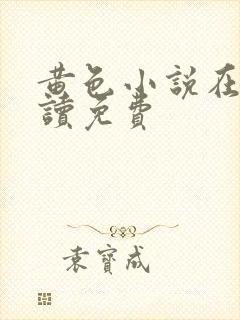 黄色小説在
讀免費
袁寶成